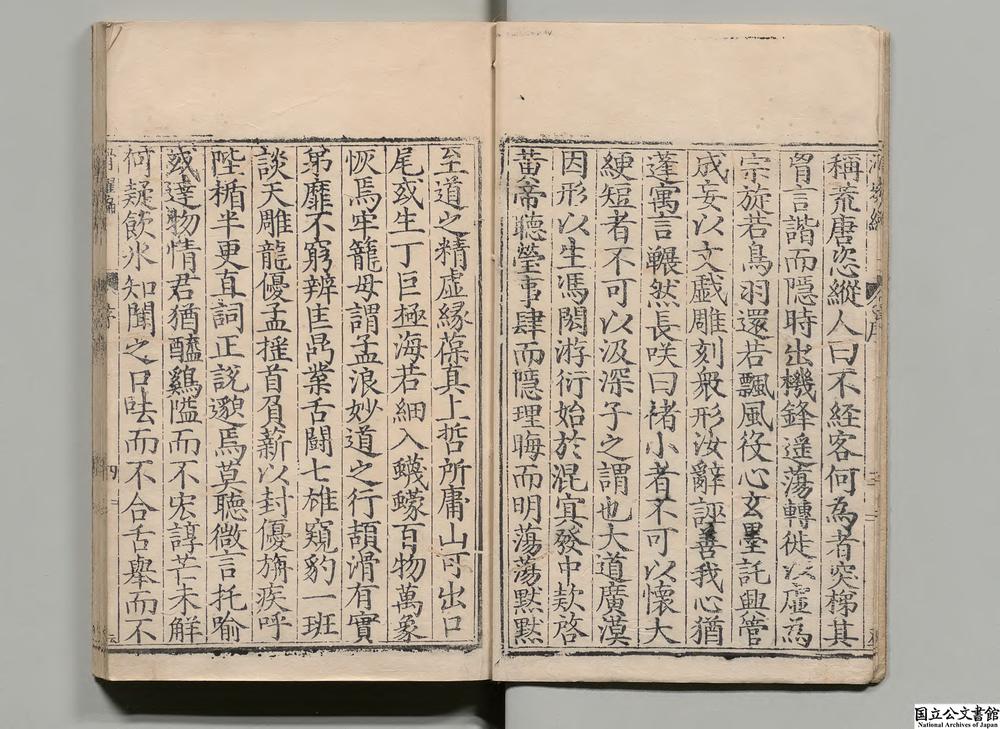 稱荒唐恣縱人曰不經客何為者突梯其
胥言諧而隱時出機鋒遥蕩轉徙以虛為
宗旋若鳥羽還若飄風役心玄墨託興管
成妄以文戲雕刻衆形汝辭誣善我心猶
蓬寓言囅然長咲曰褚小者不可以懷大
綆短者不可以汲深子之謂也大道廣漠
因形以生馮閎游衍始於混冥發中欵啓
黃帝聽瑩事肆而隱理晦而明蕩蕩黙黙
至道之精虛緣葆真上哲所庸山可出口
尾或生丁巨極海若細入蠛蠓百物萬象
恢焉牢籠毋謂孟浪妙道之行頡滑有實
弟靡不窮辨匡鼎業舌鬪七雄窺豹一班
談天雕龍優孟揺首負薪以封優旃疾呼
陛楯半更直詞正說邈焉莫聽微言托喻
或達物情君猶醯鷄隘而不宏諄芒未解
何疑飲氷知聞之口呿而不合舌舉而不
滑耀編
序
四
国立公文書館
National Archives of Japan